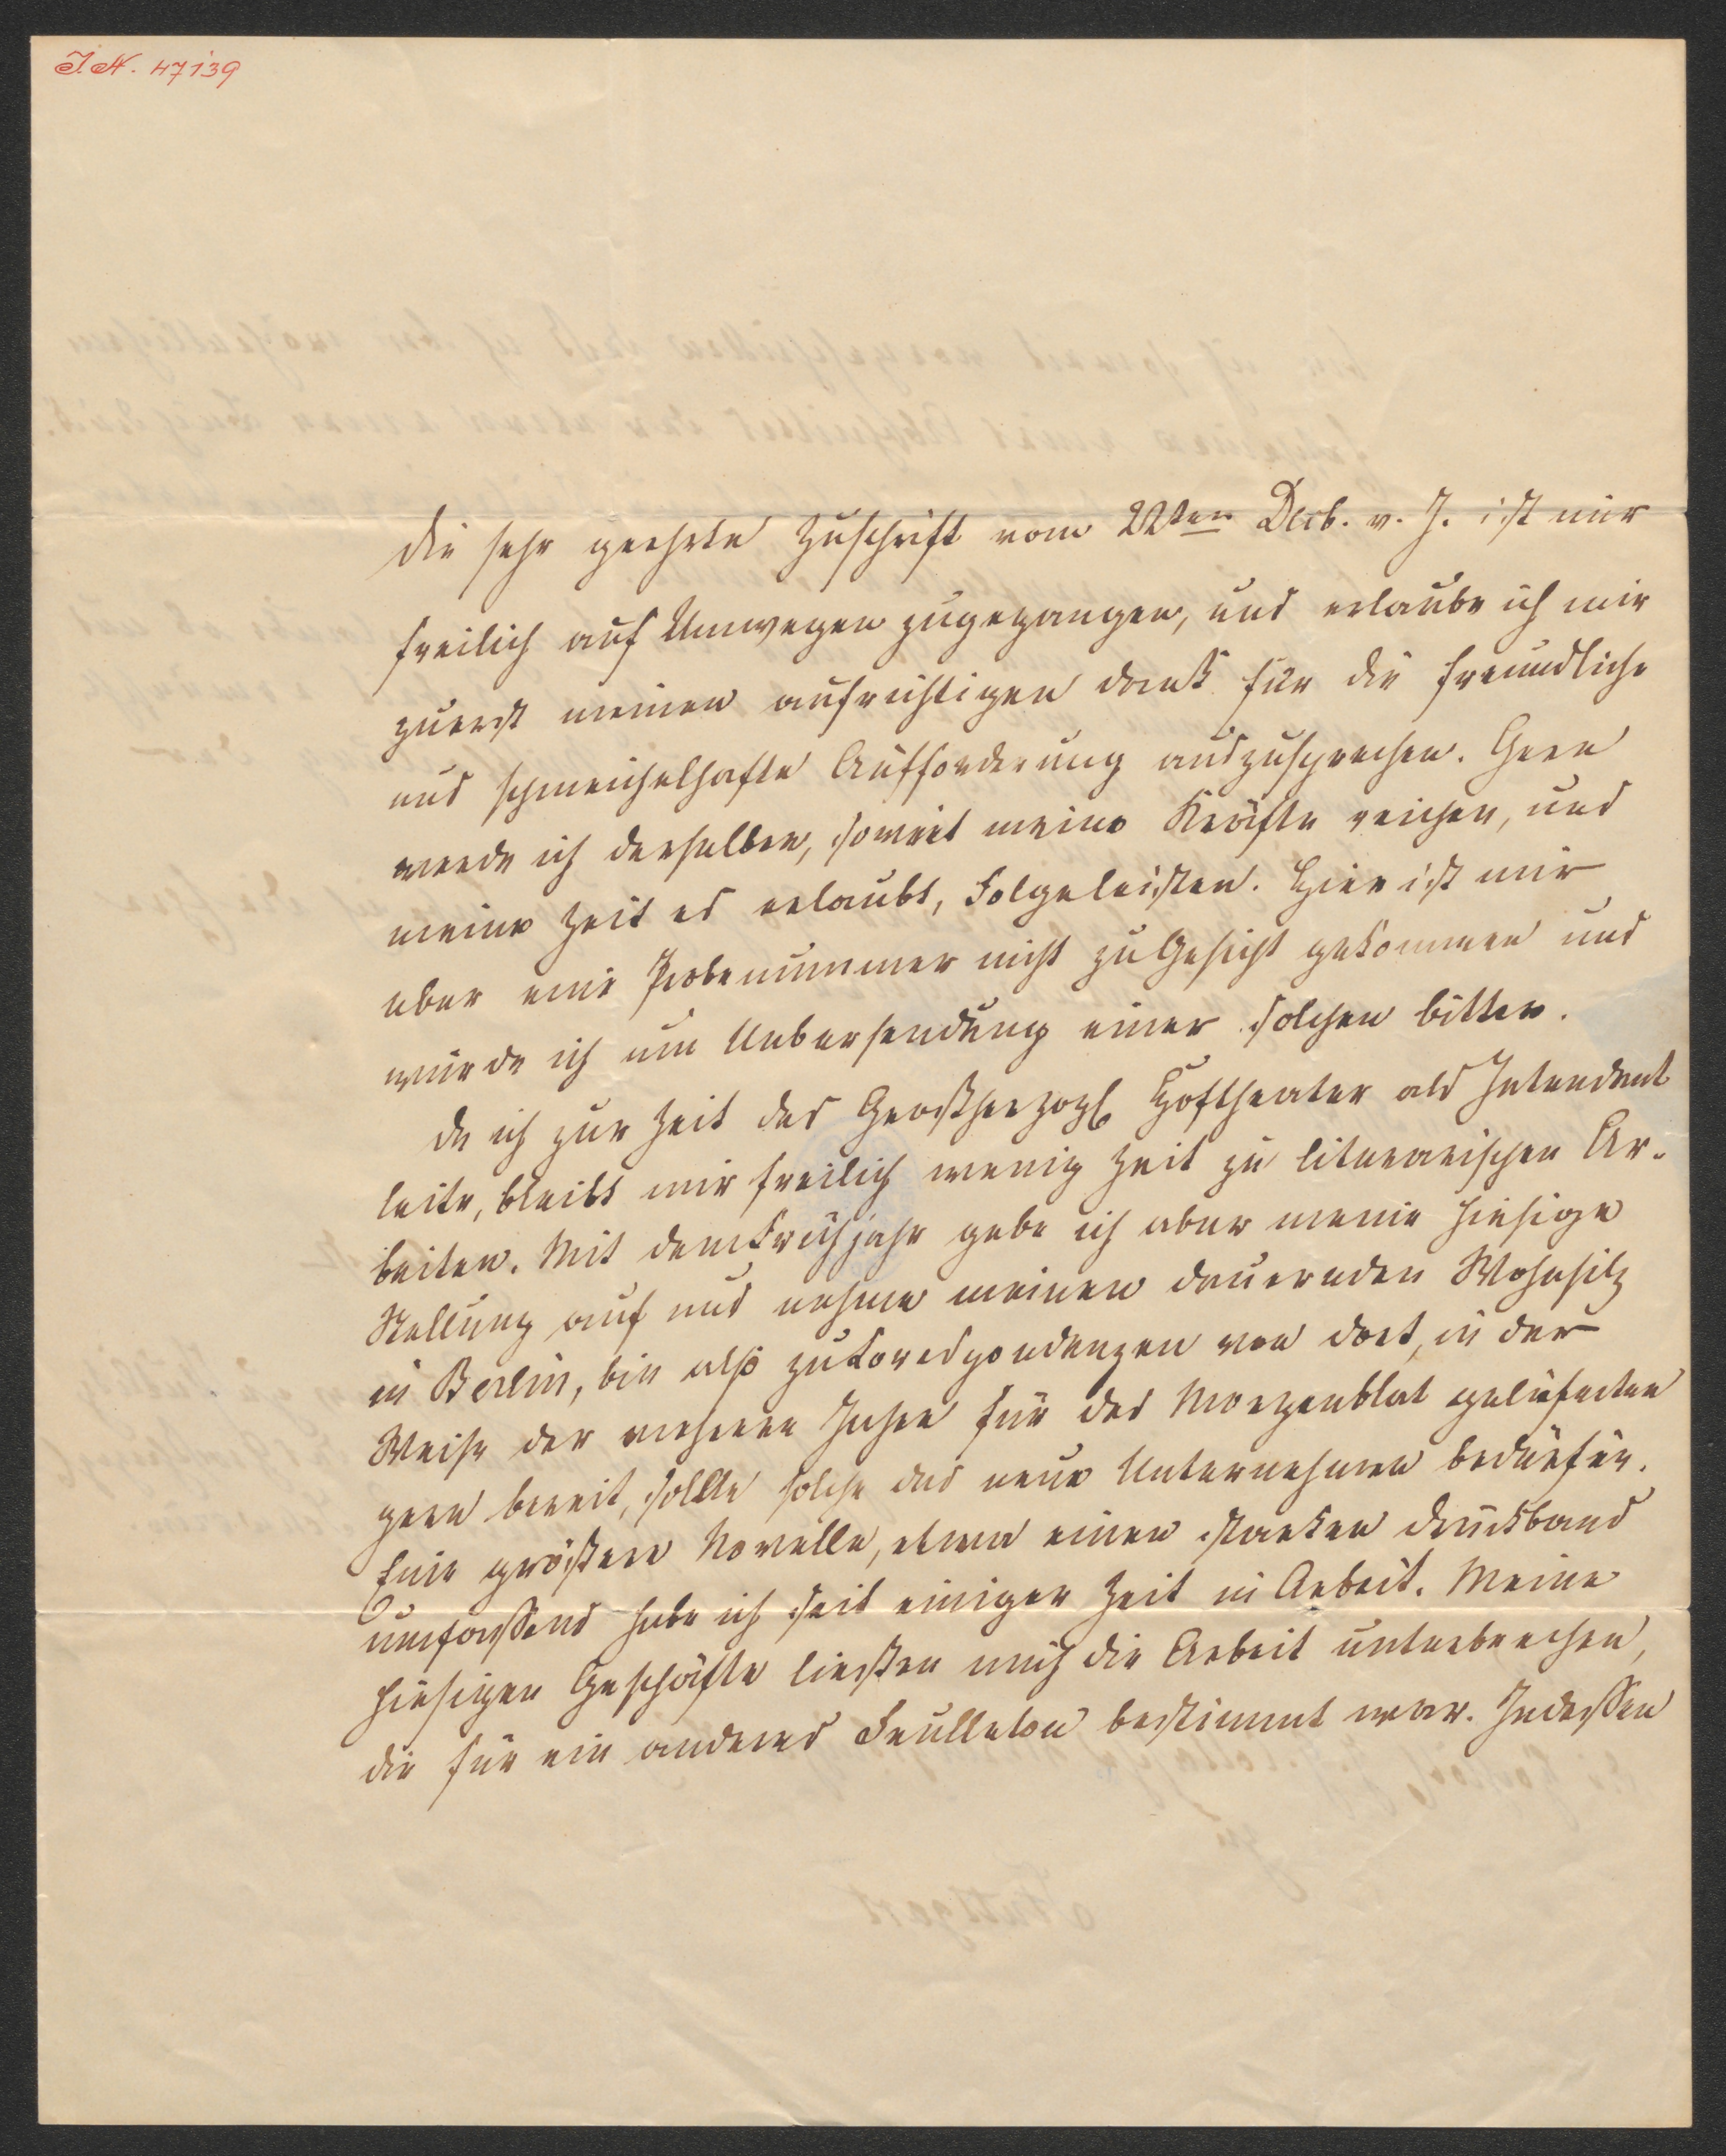 I.N. 47139
die sehr geehrte Zuschrift vom 22ten Decb. v. J. ist mir
freilich auf Umwegen zugegangen, und erlaube ich mir
zuerst meinen aufrichtigen Dank für die freundliche
und schmeichelhafte Aufforderung auszusprechen. Gern
werde ich derselben, soweit meine Kräfte reichen, und
meine Zeit es erlaubt, Folge leisten. Hier ist mir
aber eine Probenummer nicht zu Gesicht gekommen und
würde ich um Uebersendung einer solchen bitten.
Da ich zur Zeit das Großherzogl Hoftheater als Intendant
leite, bleibt mir freilich wenig Zeit zu literarischen Ar-
beiten. Mit dem Frühjahr gebe ich aber meine hiesige
Stellung auf und nehme meinen dauernden Wohnsitz
in Berlin, bin also zu Korrespondenzen von dort, in der
Weise der mehrere Jahre für das Morgenblat gelieferten
gern bereit, sollte solche das neue Unternehmen bedürfen.
Eine größere Novelle, etwa einen starken Druckband
umfassend habe ich seit einiger Zeit in Arbeit. Meine
hiesigen Geschäfte ließen mich die Arbeit unterbrechen,
die für ein anderes Feulleton bestimmt war. Indessen